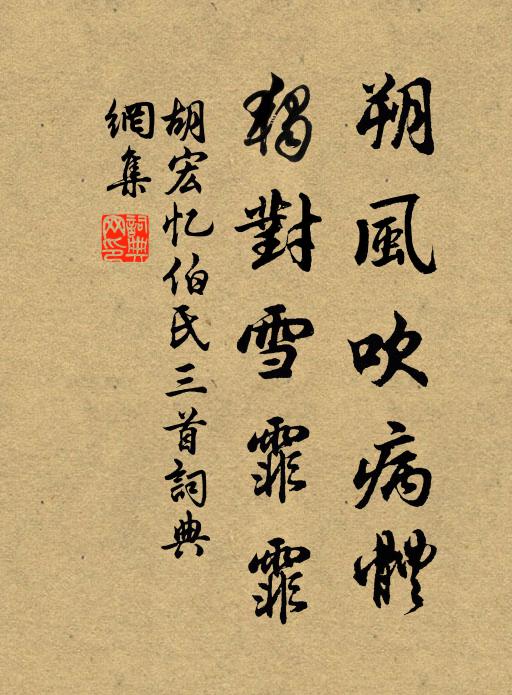 朔風吹病體
獨對雪霏霏
胡宏忆伯氏三首詞典
網集
詞典網印